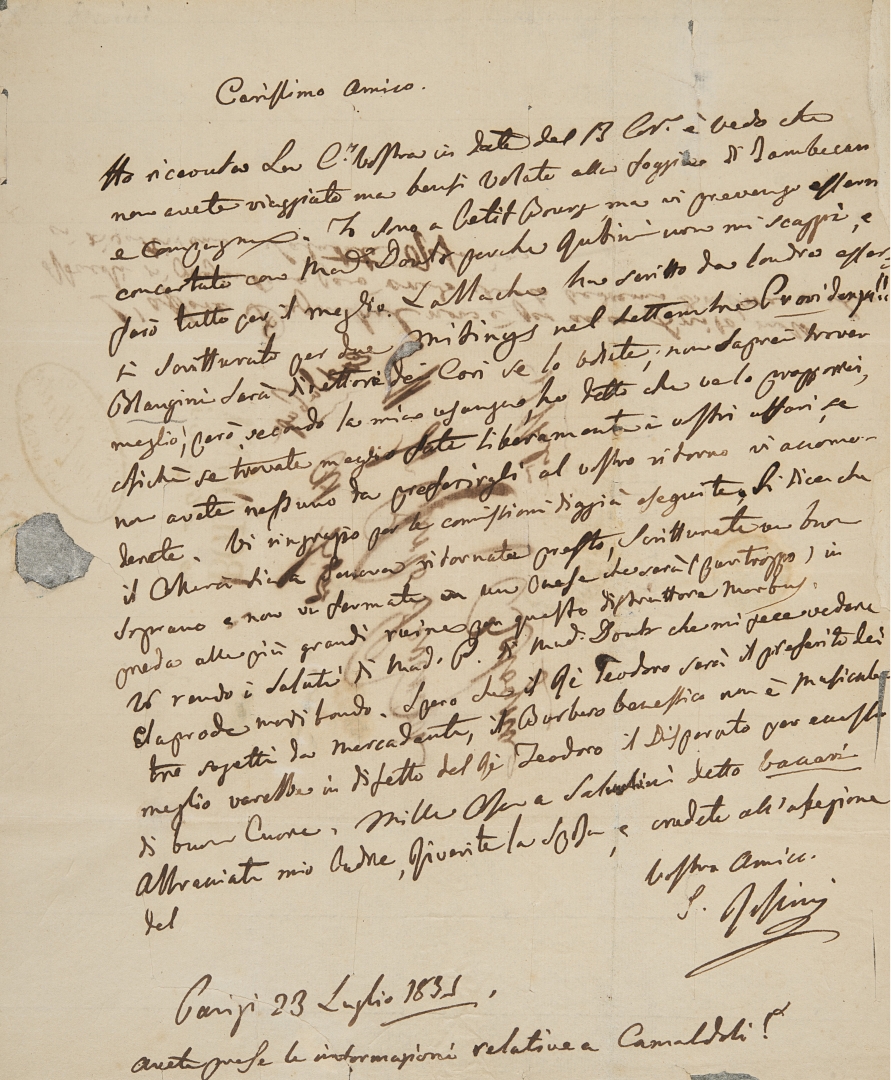 Carissimo Amico.
Ho ricevuta La C.ra Vostra in data del 13 Cor.e e vedo che
non avete viaggiato ma bensi volato alla foggia di Zambeccari
e Compagnia. Io sono a Petit Bourg ma vi prevengo essermi
concertato con Mad.e Dont perche Rubini non mi scappi, e
farò tutto per il meglio. Lablache ha scritto da Londra esser
si scritturato per due Mitings nel settembre Providenza!!
Blangini sarà direttore dei Cori se lo volete; non saprei trovar
meglio, però secondo la mia usanza, ho detto che ve lo proporrei,
sichè se trovate meglio fate liberamente i vostri affari, se
non avete nessuno da preferirgli al vostro ritorno vi accomo-
derete. Vi ringrazio per le comissioni diggià eseguite, Si dice che
il Cholera sia a ritornate presto, scritturate un buon
soprano e non vi fermate in un Paese che sarà (purtroppo) in
preda alle più grandi ruine per questo distruttore Morbus.
Vi rendo i saluti di Mad. P. di Mad. Dont che mi fece vedere
Elaprode moribondo. Spero che il Rè Teodoro sarà il preferito dei
tre sogetti da Mercadante, il Burbero benefico non è Musicabile
meglio varebbe in difetto del Rè Teodoro il Disperato per eccesso
di buon Cuore. Mille Cose a Salvini detto baccari
Abbracciate mio Padre, Riverite la Sposa, e credete all'afezione
del
Vostro Amico.
G. Rossini
Parigi 23 Luglio 1831.
avete prese le informazioni relative a Camaldoli?